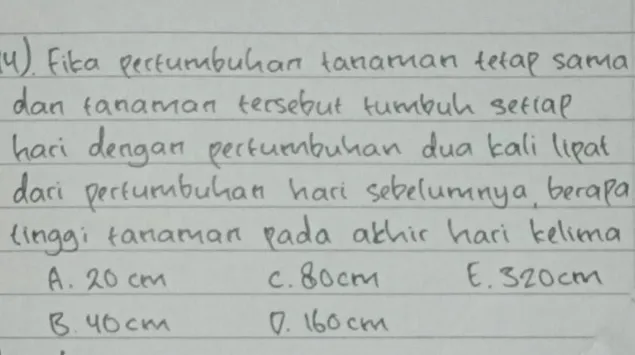 14). Jika pertumbuhan tanaman tetap sama
dan tanaman tersebut tumbuh setiap
hari dengan pertumbuhan dua kali lipat
dari pertumbuhan hari sebelumnya, berapa
tinggi tanaman pada akhir hari kelima
A. 20 cm C. 80cm E. 320cm
B. 40cm D. 160cm